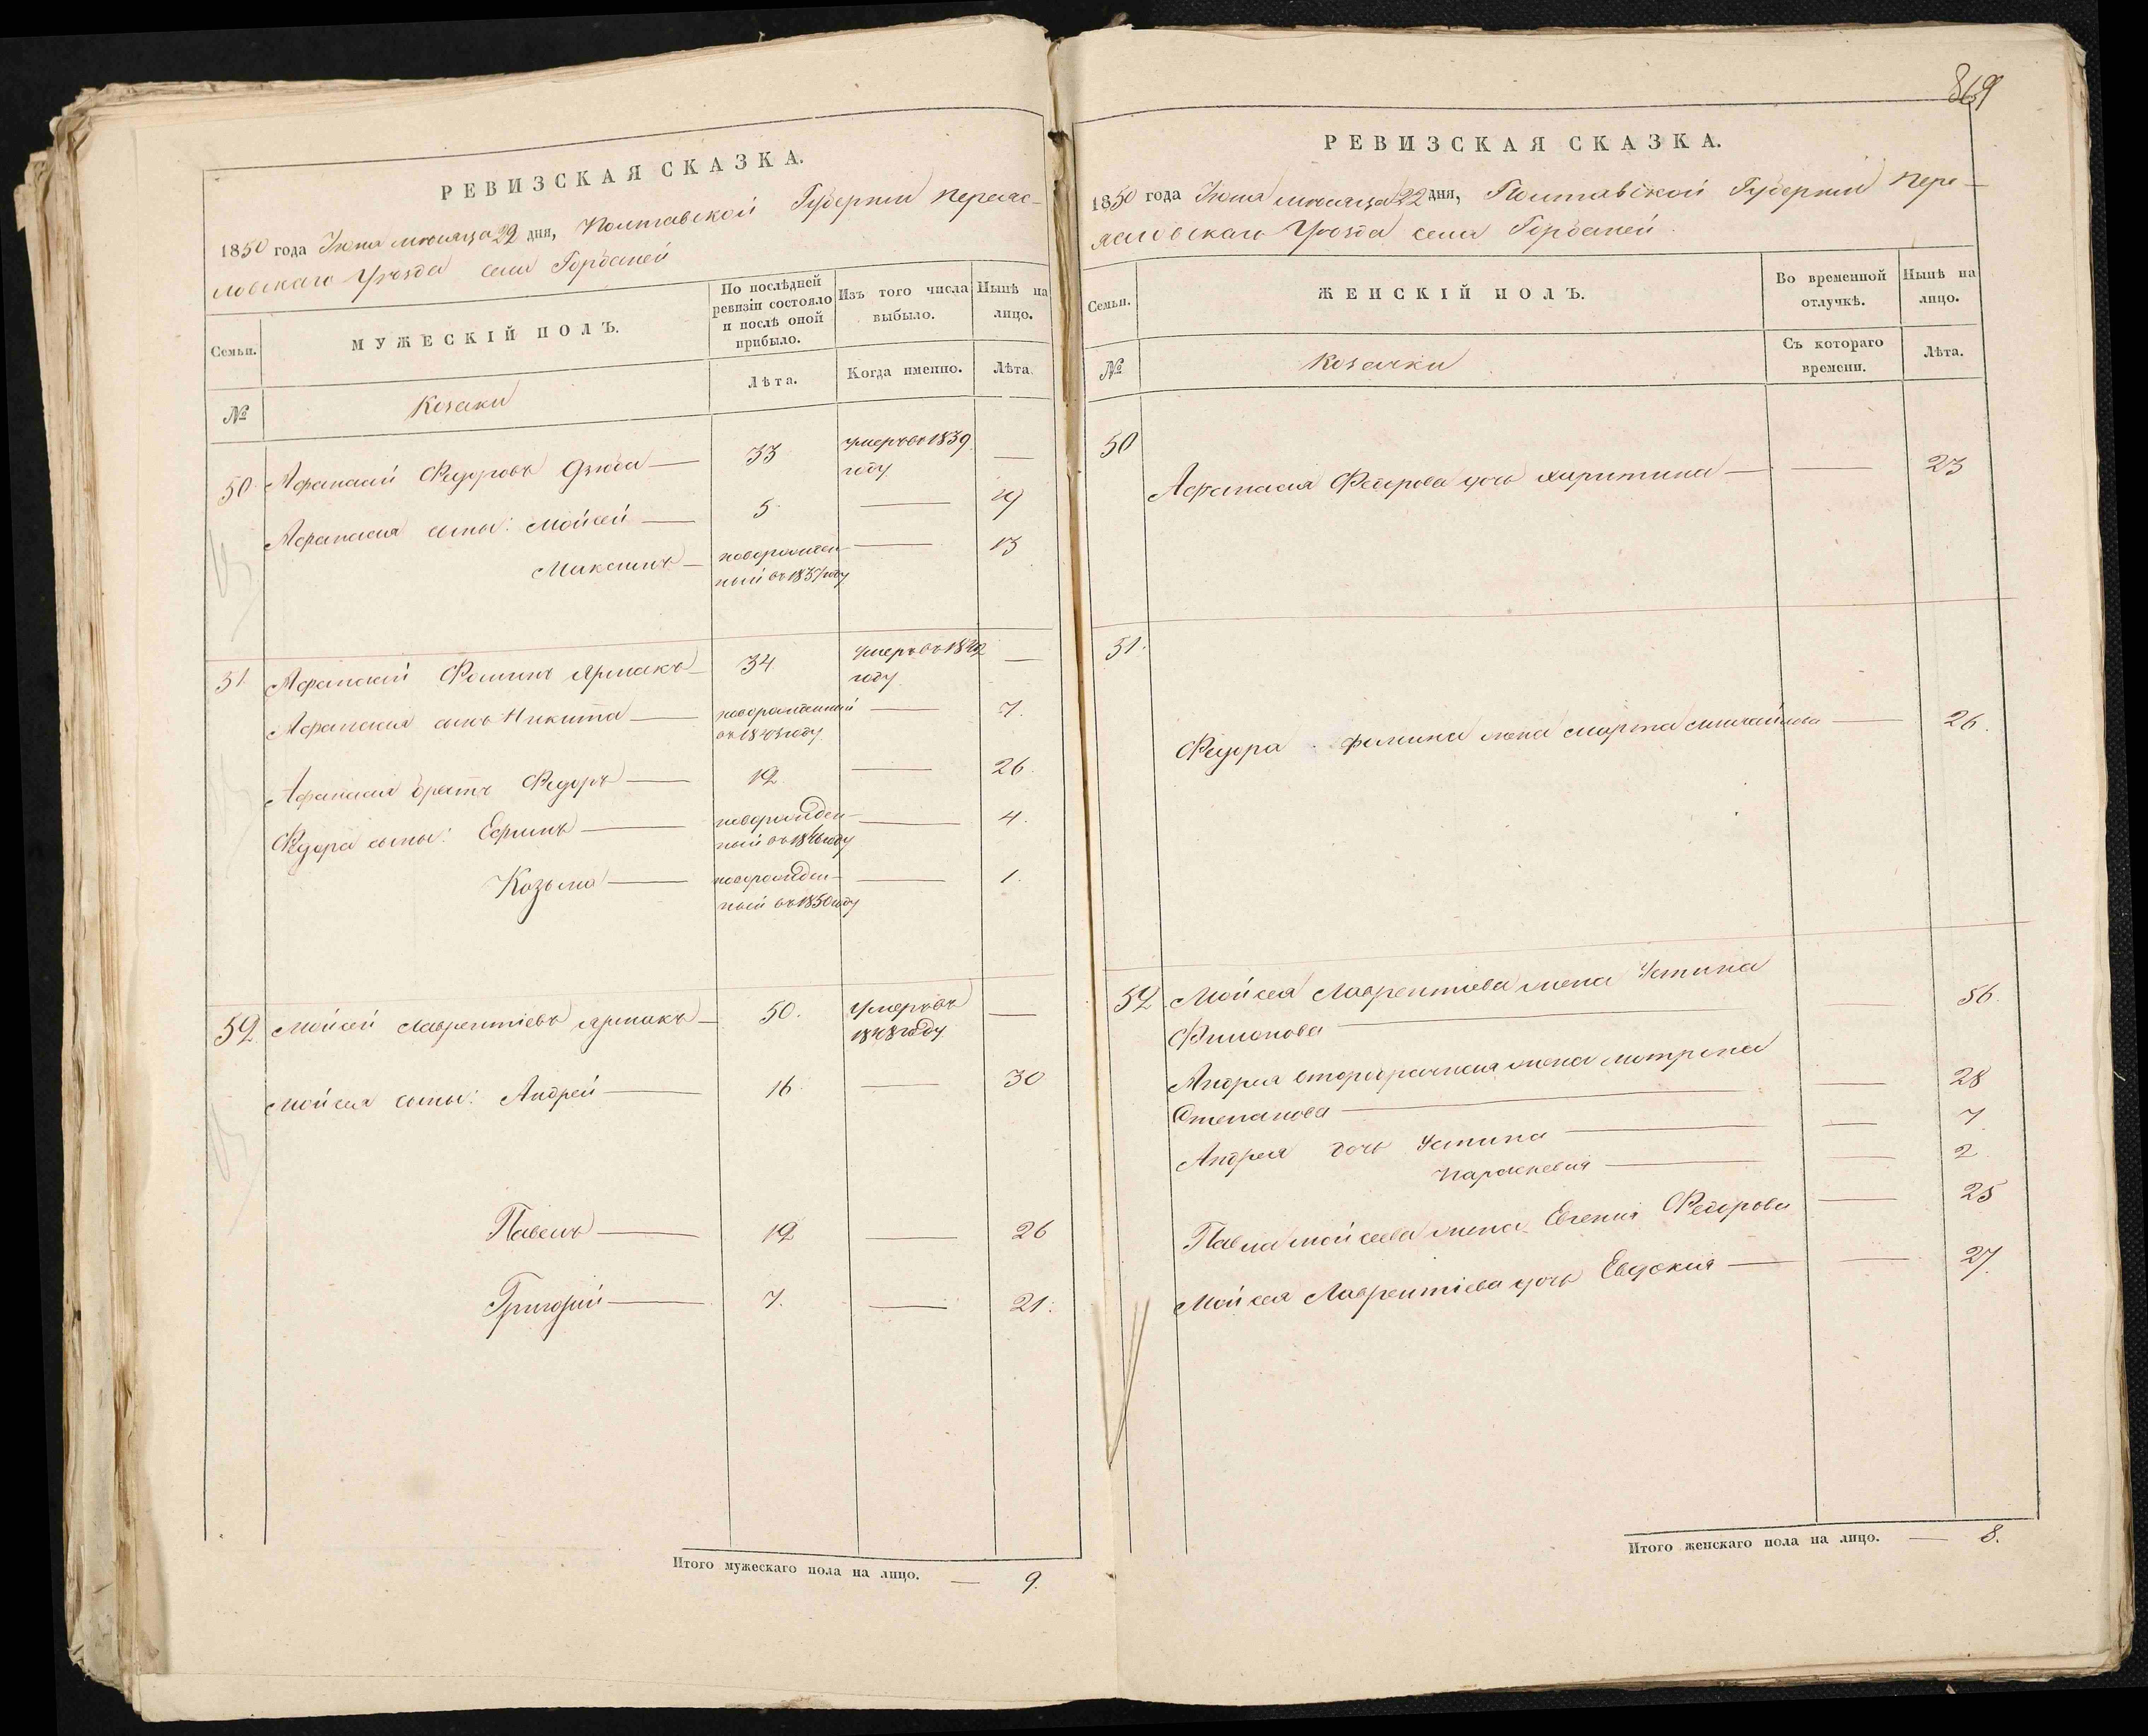 РЕВИЗСКАЯ СКАЗКА.
1850 года Июня месяца 22 дня, Полтавской Губернии Переяс-
ловскаго Уѣзда села Горбаней
Семьи.
МУЖЕСКІЙ ПОЛЪ.
По послѣдней
ревизіи состояло
и послѣ оной
прибыло.
Изъ того числа
выбыло.
Нынѣ на
лицо.
№
Козаки
Лѣта.
Когда именно.
Лѣта.
50 Афанасий Федоровъ Дзюба — 33 умеръ въ 1839 —
году
Афанасия сыны: Мойсей — 5 — 19
Максимъ — новорожден- — 13
ный въ 1837 году
51 Афанасий Фоминъ Ярмакъ — 34 умеръ въ —
году
Афанасия сынъ Никита — новорожденный — 7.
въ 1843 году
Афанасия братъ Федоръ — 12 — 26.
Федора сыны: Ефимъ — новорожден- — 4.
ный въ 1846 году
Козьма — новорожден- — 1.
ный въ 1850 году
52 Мойсей Лаврентіевъ Ярмакъ — 50. Умеръ въ —
1848 году
Мойсея сыны: Андрей — 16 — 30
Павелъ — 12 — 26
Григорий — 7. — 21.
Итого мужескаго пола на лицо. — 9.
869
РЕВИЗСКАЯ СКАЗКА.
1850 года Июня месяца 22 дня, Полтавской Губернии Пере-
ясловскаго Уѣзда села Горбаней
Семьи.
ЖЕНСКІЙ ПОЛЪ.
Во временной
отлучкѣ.
Нынѣ на
лицо.
№
Козачки
Съ котораго
времени.
Лѣта.
50
Афанасия Федорова дочь Харитина — — 23
51.
Федора Фомина жена Марта Михайлова — 26.
52 Мойсея Лаврентіева жена Устина
Филонова — — 56.
Андрея второбрачная жена Мотрона
Степанова — — 28
Андрея дочь Устина — — 7
Параскевия — — 2
Павла Мойсеева жена Евгения Федорова — 25
Мойсея Лаврентіева дочь Евдокия — — 27.
Итого женскаго пола на лицо. — 8.